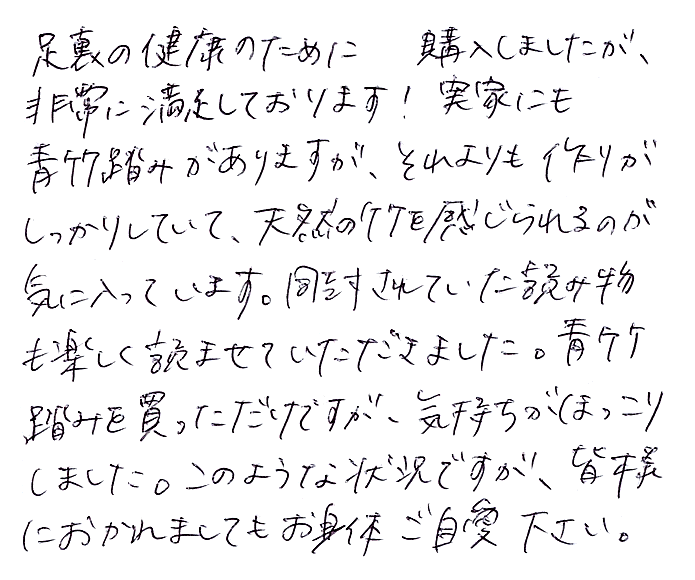 足裏の健康のために　購入しましたが、
非常に満足しております！ 実家にも
青竹踏みがありますが、それよりも作りが
しっかりしていて、天然の竹を感じられるのが
気に入っています。同封されていた読み物
も楽しく読ませていただきました。青竹
踏みを買っただけですが、気持ちがほっこり
しました。このような状況ですが、皆様
におかれましてもお身体ご自愛下さい。